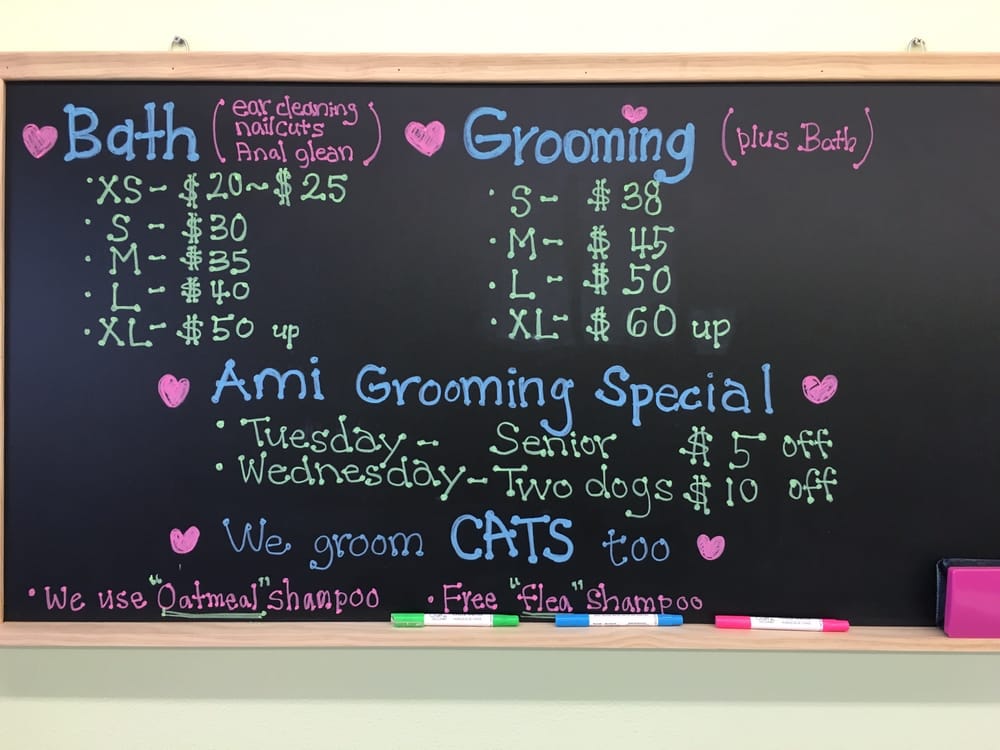 Bath (ear cleaning
nailcuts
Anal glean)
· XS - $20~$25
· S - $30
· M - $35
· L - $40
· XL - $50 up
Grooming (plus Bath)
· S - $38
· M - $45
· L - $50
· XL - $60 up
Ami Grooming Special
· Tuesday - Senior $5 off
· Wednesday - Two dogs $10 off
We groom CATS too
· We use "Oatmeal" shampoo · Free "flea" shampoo